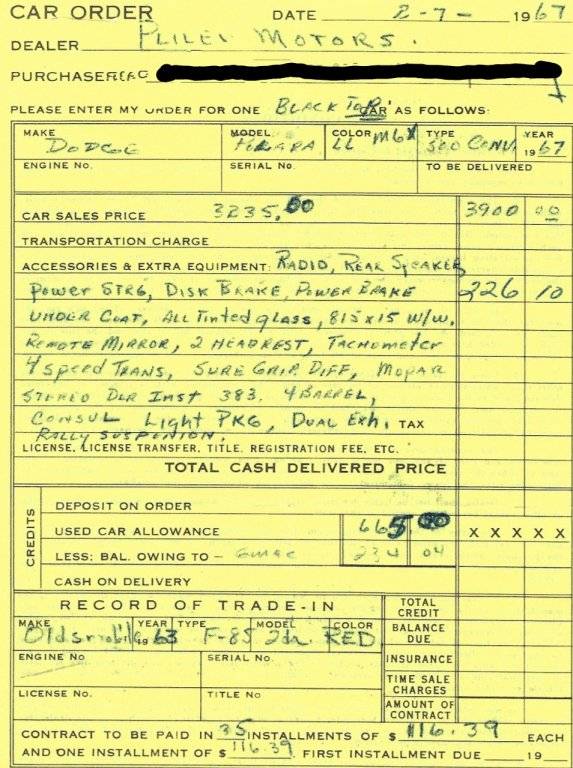 CAR ORDER DATE 2-7- 1967
DEALER MOTORS.
PURCHASER
PLEASE ENTER MY ORDER FOR ONE BLACK TOP CAR AS FOLLOWS:
MAKE MODEL COLOR TYPE YEAR
DODGE LL M6X 500 CONV. 1967
ENGINE NO. SERIAL NO. TO BE DELIVERED
CAR SALES PRICE 3235.00 3900 00
TRANSPORTATION CHARGE
ACCESSORIES & EXTRA EQUIPMENT: RADIO, REAR SPEAKER
POWER STRG, DISK BRAKE, POWER BRAKE 226 10
UNDER COAT, ALL Tinted glass, 815x15 W/W.
REMOTE MIRROR, 2 HEADREST, TACHOMETER
4 Speed TRANS, SURE GRIP. DIFF, MOPAR
STEREO DLR INST 383. 4 BARREL,
CONSUL Light PKG, DUAL Exh. TAX
RALLY SUSPENION.
LICENSE, LICENSE TRANSFER, TITLE, REGISTRATION FEE, ETC.
TOTAL CASH DELIVERED PRICE
CREDITS
DEPOSIT ON ORDER
USED CAR ALLOWANCE 665.00 X X X X X
LESS: BAL. OWING TO - GMAC 234 04
CASH ON DELIVERY
RECORD OF TRADE-IN TOTAL CREDIT
MAKE YEAR TYPE MODEL COLOR BALANCE DUE
Oldsmobile 1963 F-85 2dr. RED
ENGINE NO. SERIAL NO. INSURANCE
TIME SALE CHARGES
LICENSE NO. TITLE NO AMOUNT OF CONTRACT
CONTRACT TO BE PAID IN 35 INSTALLMENTS OF $ 116.39 EACH
AND ONE INSTALLMENT OF $ 116.39. FIRST INSTALLMENT DUE 19